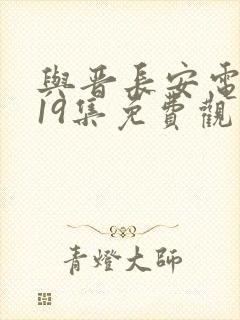 與晋長安電
19集免費觀
青燈大師